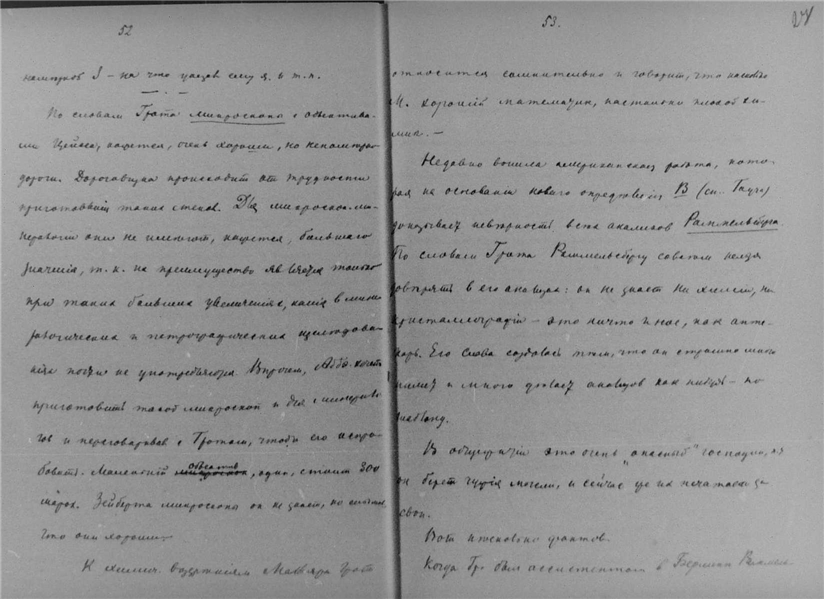 52
на что указав ему я. и т.п.
По словам Грота микроскопы с объектива-
ми Цейса, кажется, очень хороши, но
дороги. Дороговизна происходит от трудности
приготовления таких стекол. Для микроскоп. ми-
нералогии они не имеют, кажется, большаго
значения, т. к. их преимущество является только
при таких больших увеличениях, какие в мине-
ралогических и петрографических изследова-
ниях почти не употребляются. Впрочем, Аббе хочет
приготовить такой микроскоп и для минерало-
гов и переговаривал с Гротом, чтобы его испро-
бовать. Маленький объектив, один, стоит 300
марок. Зейберта микроскопа он не знает, но слышал,
что они хороши.
К химич. воззрениям Грот
53.
относится сомнительно и говорит, что насколько
М. хороший математик, настолько плохой хи-
мик.—
Недавно вышла американская работа, кото-
рая на основании нового определения B (см. )
доказывает неверность всех анализов Раммельсберга
По словам Грота Раммельсбергу совсем нельзя
доверять в его анализах: он не знает ни химии, ни
кристаллографии — это ничто иное, как апте-
карь. Его слава создалась тем, что он страшно много
пишет и много делает анализов как нибудь — по
шаблону.
В обществе это очень "опасный" господин, ибо
он берет чужия мысли, и сейчас же их печатает за
свои.
Вот несколько фактов.
Когда Гр. был ассистентом в Берлине Раммель-